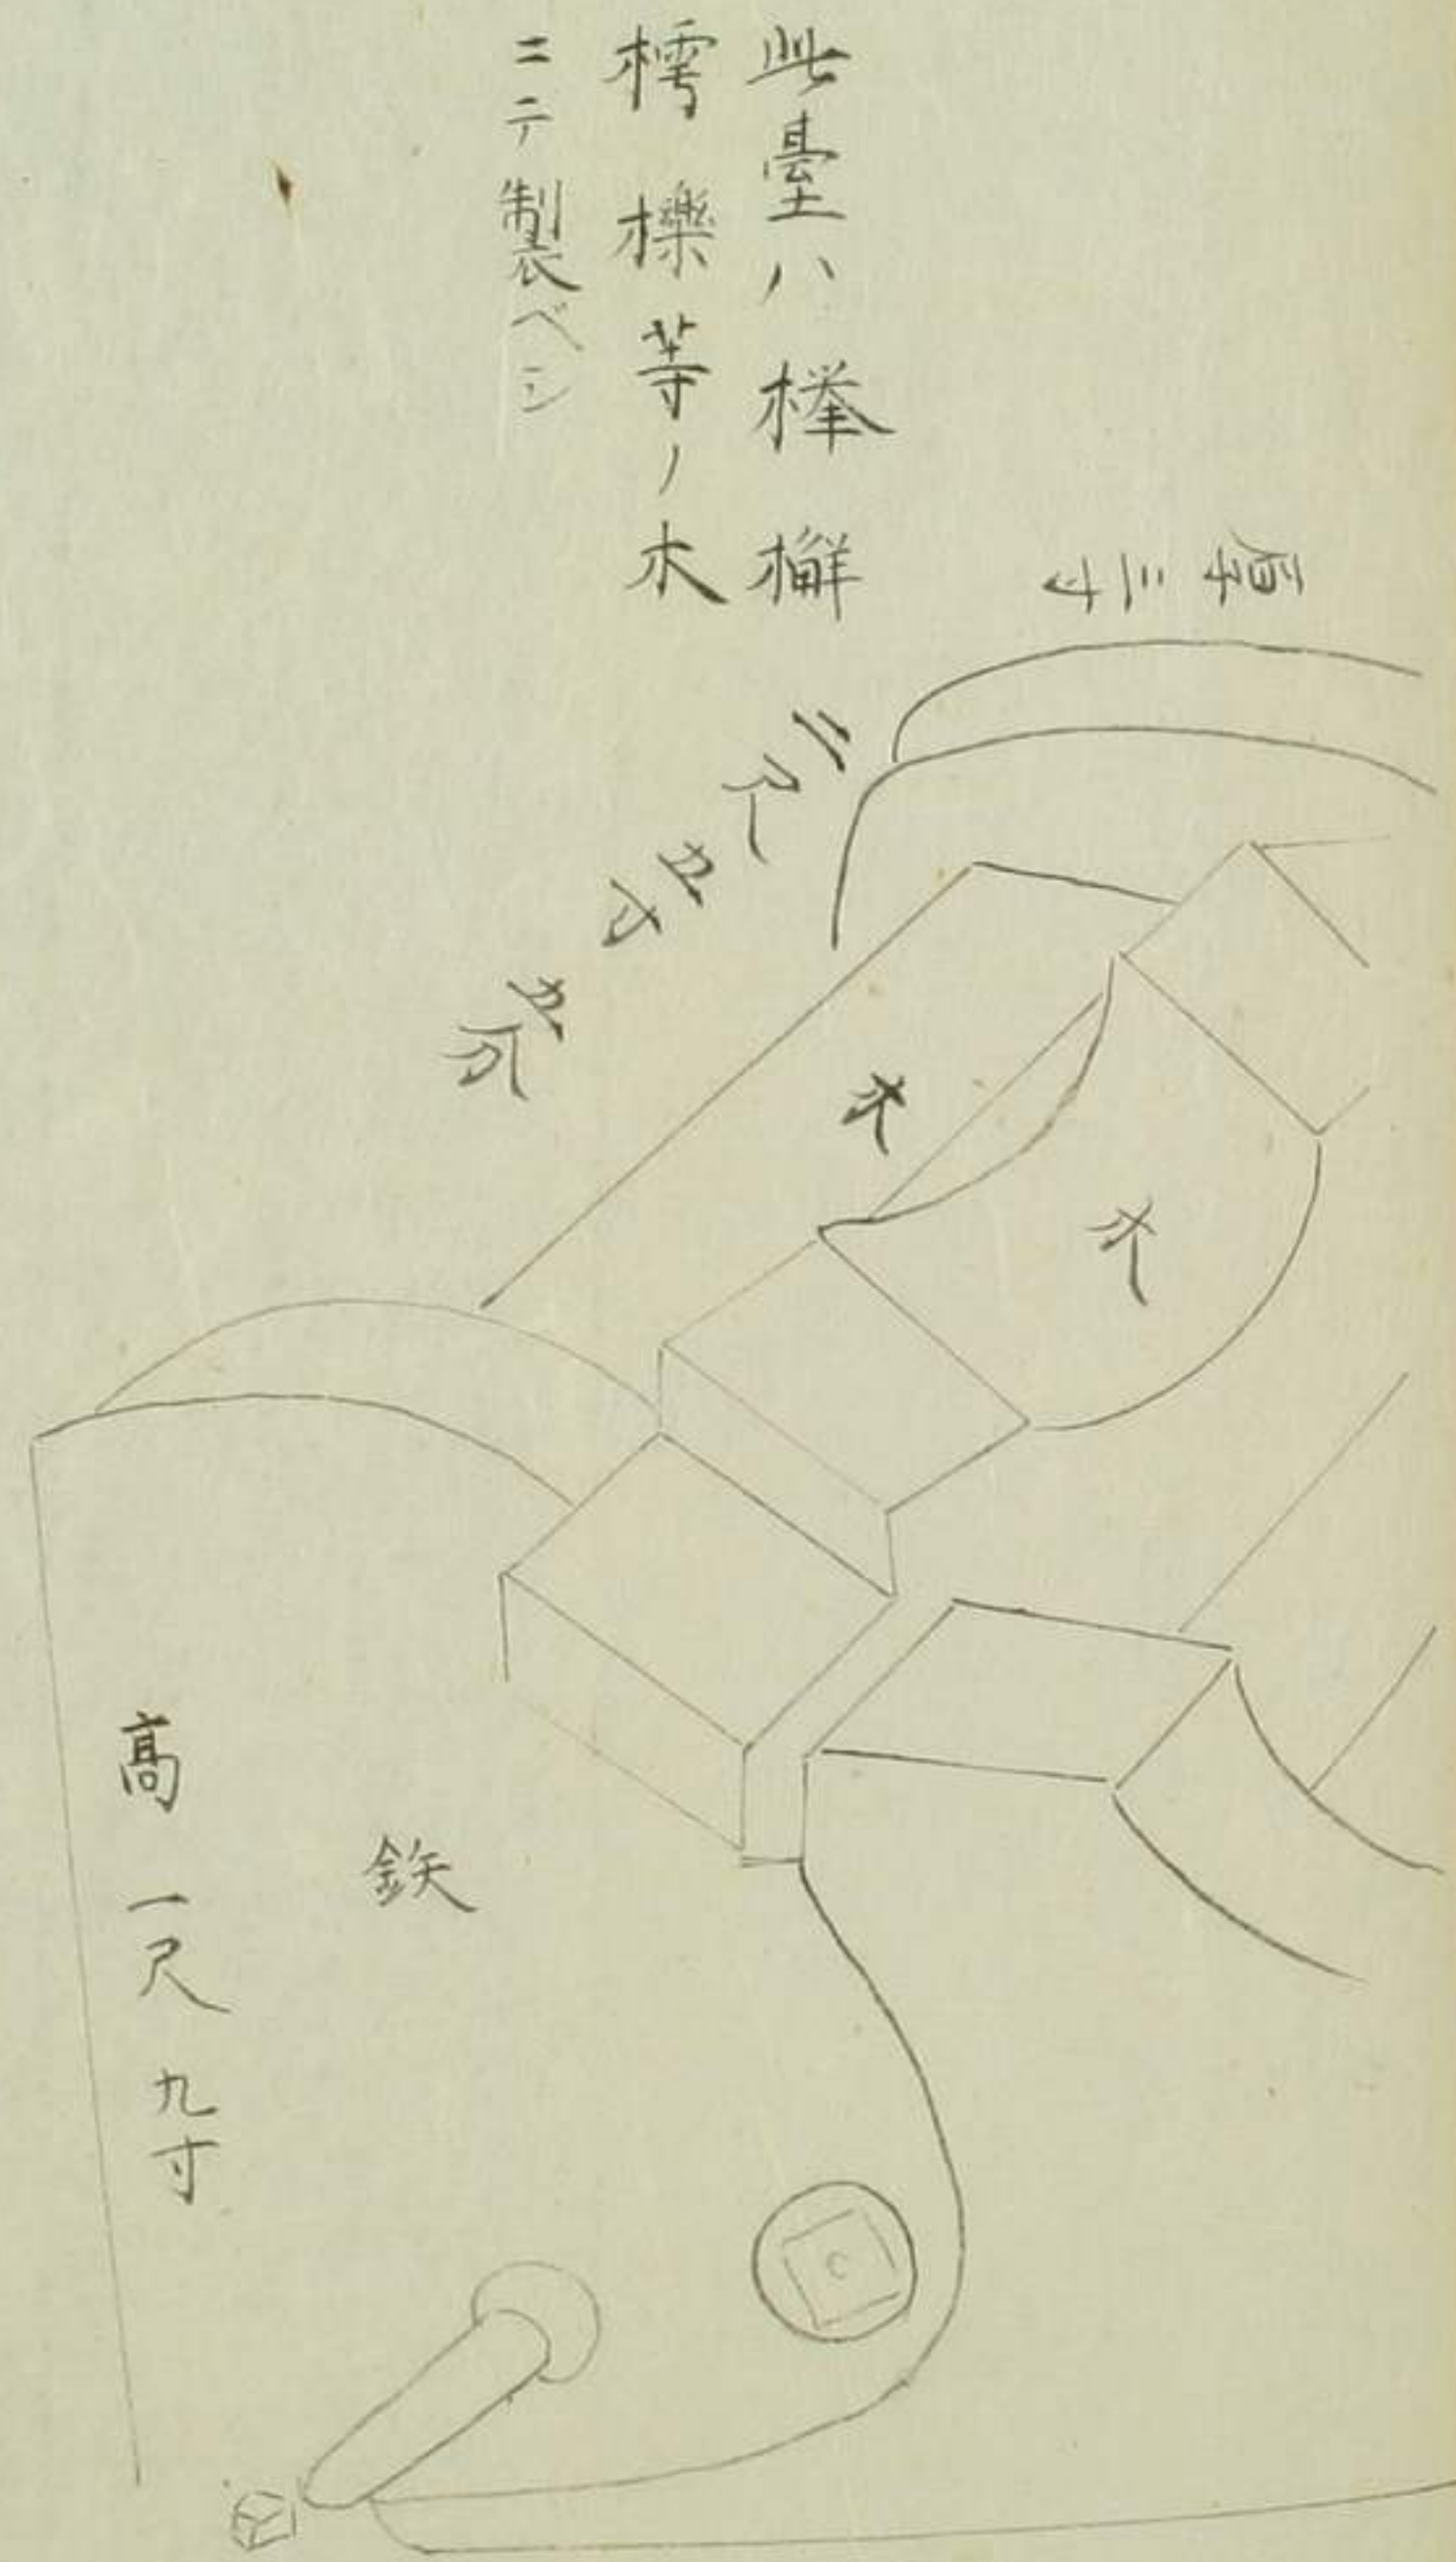 此臺ハ欅檞
樗檪等ノ木
ニテ製ベシ
厚三寸
二尺五寸五分
木
木
高一尺九寸
鉃